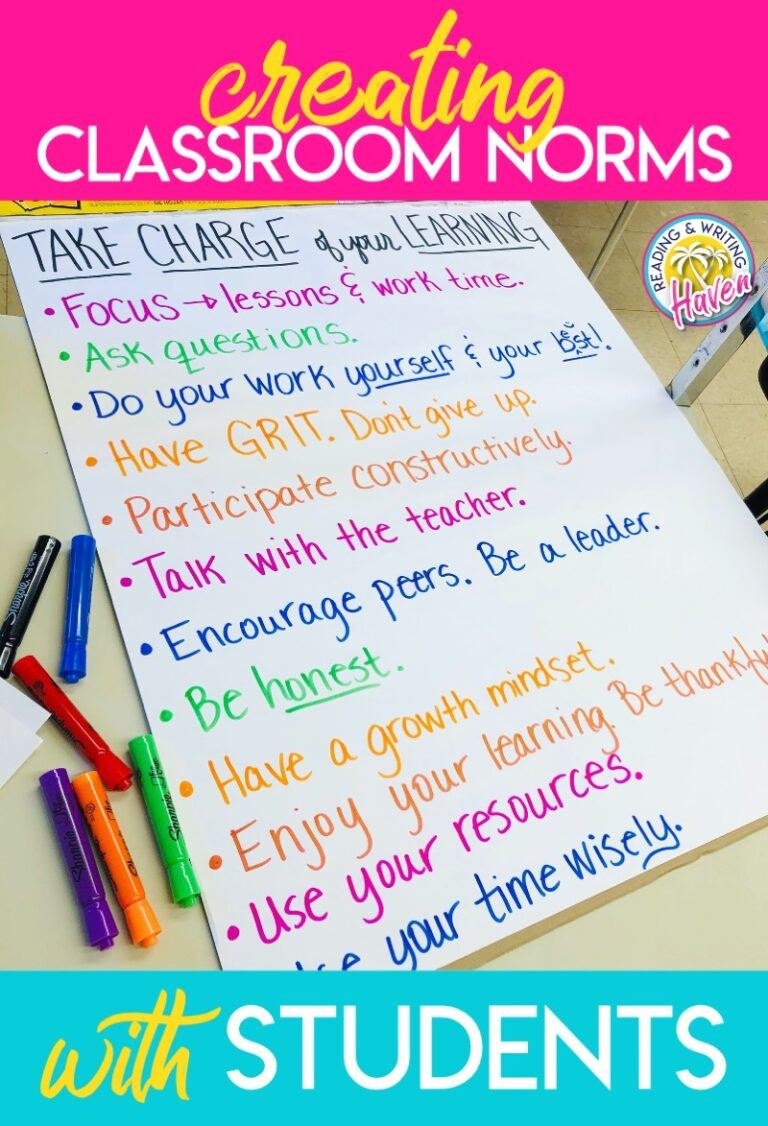 creating
CLASSROOM NORMS
TAKE CHARGE of your LEARNING
READING & WRITING
Haven
• FOCUS → lessons & work time.
• Ask questions.
• Do your work yourself & your best!
• Have GRIT. Don't give up.
• Participate constructively.
• Talk with the teacher.
• Encourage peers. Be a leader.
• Be honest.
• Have a growth mindset.
• Enjoy your learning. Be thankful
• Use your resources.
your time wisely.
Sharpie
with STUDENTS